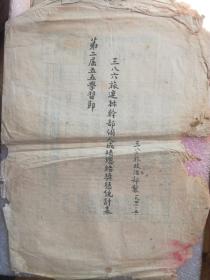 三八六旅連排幹部個人成績總結獎惩統計表
三八六旅政治部製
第二屆五五學習節